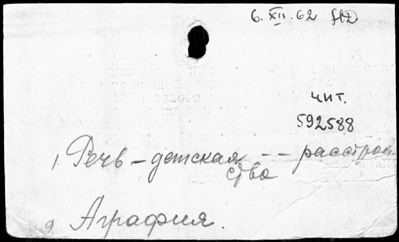 6. XII. 62
чит.
592588
1, Речь – детская -- расстрой
ство
2 Аграфия.